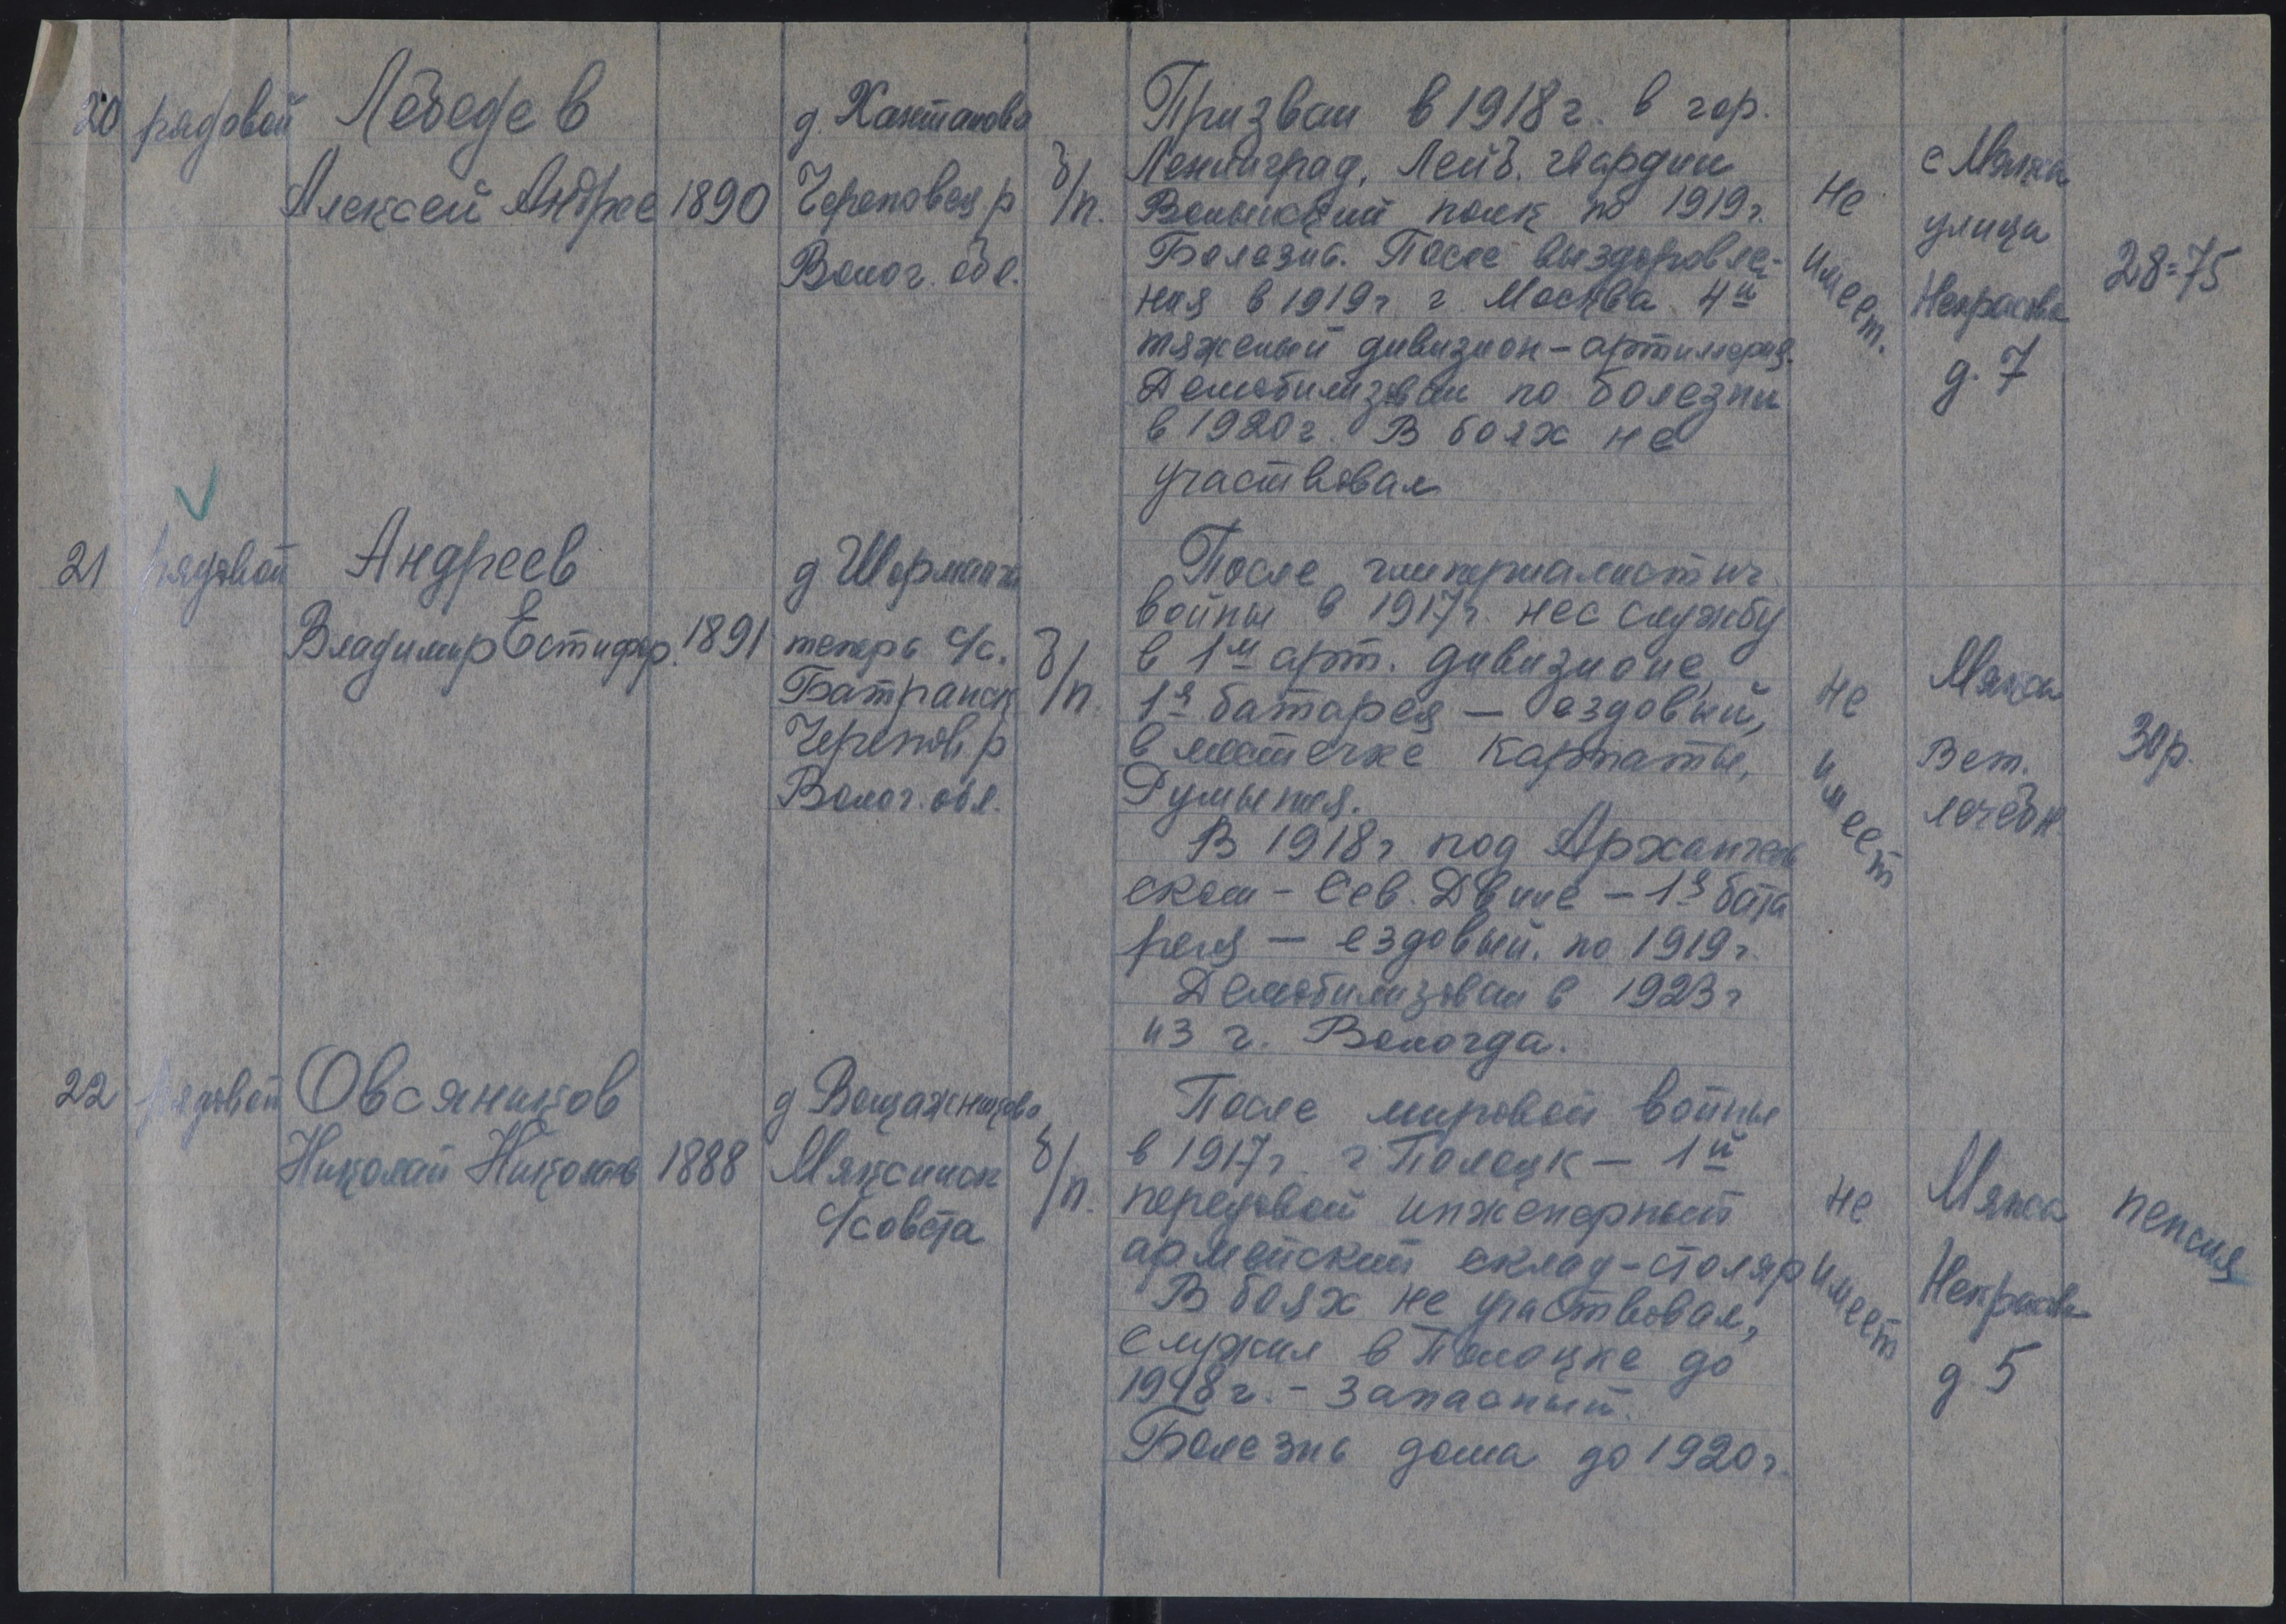 20 рядовой
Лебедев
Алексей Андрее
1890
д. Хантаново
Череповец р
Волог. обл.
б/п.
Призван в 1918 г. в гор.
Ленинград, Лейб. гвардии
Волынский полк по 1919 г.
Болезнь. После выздоровле-
ния в 1919 г г. Москва 4й
тяжелый дивизион - артиллерия.
Демобилизован по болезни
в 1920 г. В боях не
участвовал
не
имеет.
с Мякса
улица
Некрасова
д. 7
28=75
21 рядовой
Андреев
Владимир Естифор.
1891
д
теперь с/с.
Батранск
Черепов р
Волог. обл.
б/п.
После империалистич.
войны в 1917 г. нес службу
в 1м арт. дивизионе,
1я батарея - ездовый,
в местечке Карпаты,
Румыния.
В 1918 г под Архангель
ском - Сев. Двине - 1я бата
рея - ездовый. по 1919 г.
Демобилизован в 1923 г
из г. Вологда.
не
имеет
Мякса
Вет.
лечебн.
30 р.
22 рядовой
Овсяников
Николай Николаев
1888
д
Мяксинск
с/совета
б/п.
После мировой войны
в 1917 г. г Полоцк - 1й
передовой инженерный
армейский склад - столяр
В боях не участвовал,
служил в Полоцке до
1918 г. - запасный.
Болезнь дома до 1920 г.
не
имеет
Мякса
Некрасова
д. 5
пенсия